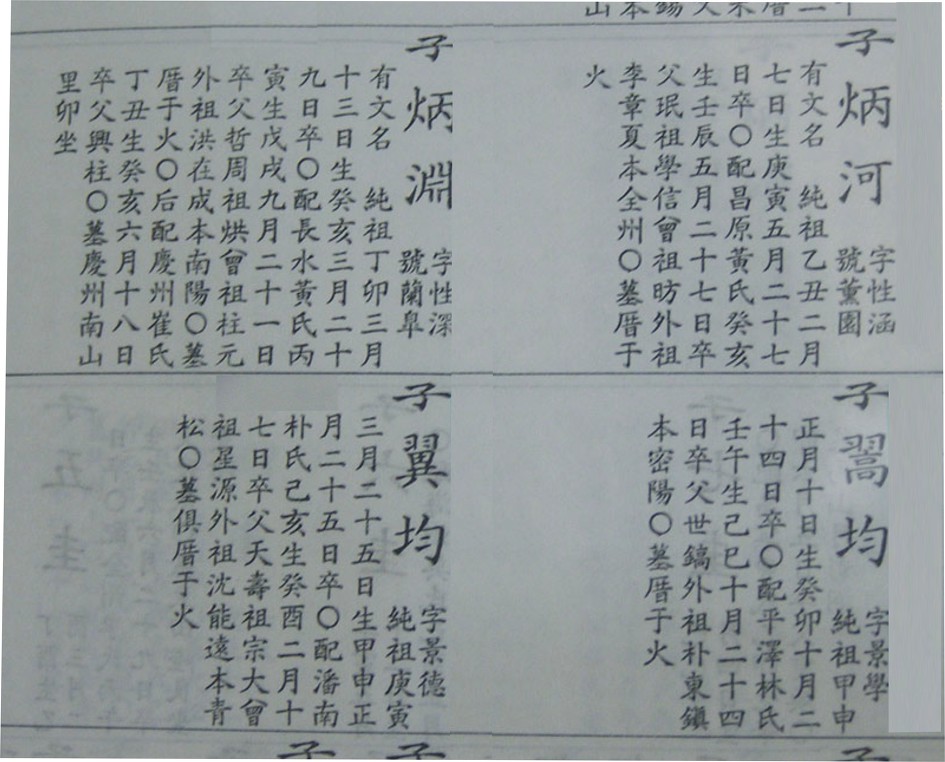 子炳河
字性涵
號薰園
有文名 純祖乙丑二月
七日生庚寅五月二十七
日卒〇配昌原黃氏癸亥
生壬辰五月二十七日卒
父珉祖學信曾祖昉外祖
李章夏本全州〇墓厝于
火
子炳淵
字性深
號蘭皐
有文名 純祖丁卯三月
十三日生癸亥三月二十
九日卒〇配長水黃氏丙
寅生戊戌九月二十一日
卒父哲周祖烘曾祖柱元
外祖洪在成本南陽〇墓
厝于火〇后配慶州崔氏
丁丑生癸亥六月十八日
卒父興柱〇墓慶州南山
里卯坐
子翯均
字景學
純祖甲申
正月十日生癸卯十月二
十四日卒〇配平澤林氏
壬午生己巳十月二十四
日卒父世鎬外祖朴東鎭
本密陽〇墓厝于火
子翼均
字景德
純祖庚寅
三月二十五日生甲申正
月二十五日卒〇配潘南
朴氏己亥生癸酉二月十
七日卒父天壽祖宗大曾
祖星源外祖沈能遠本青
松〇墓俱厝于火
子
子
子